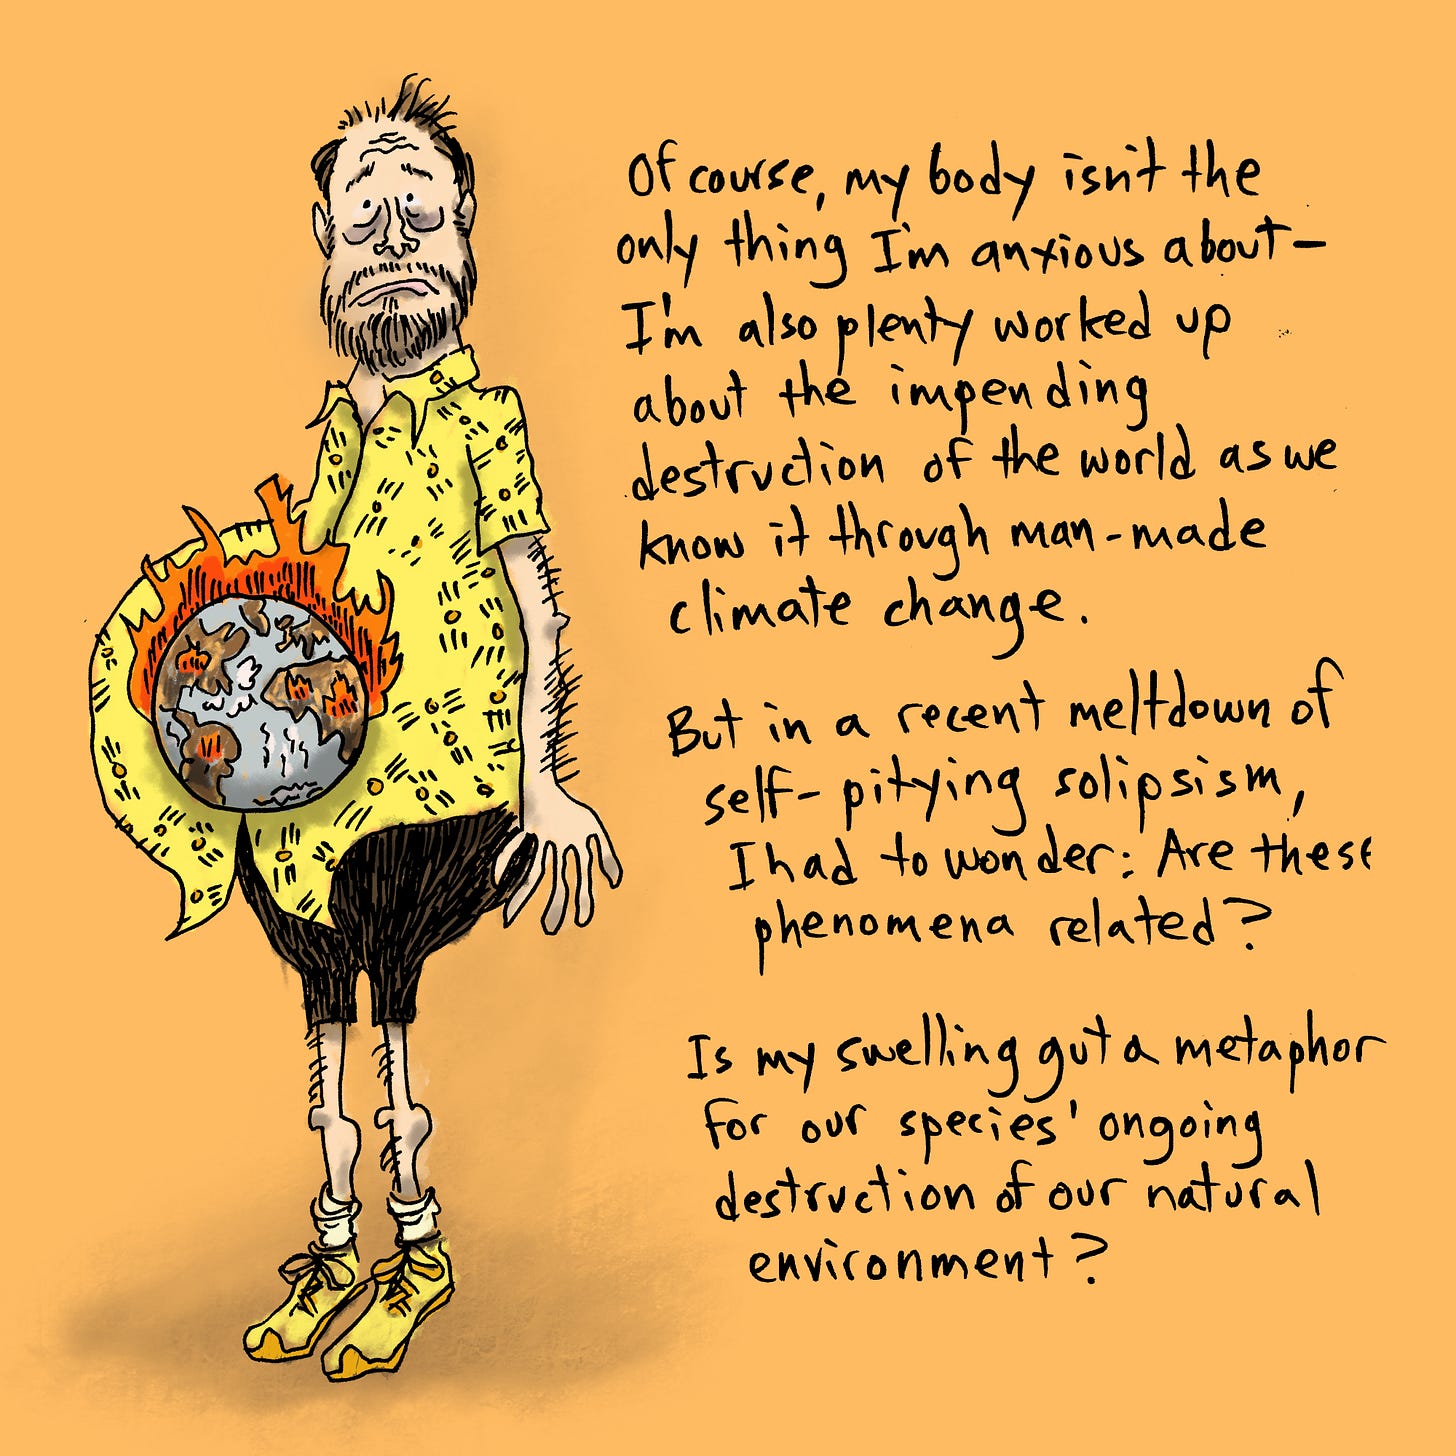 Of course, my body isn't the
only thing I'm anxious about—
I'm also plenty worked up
about the impending
destruction of the world as we
know it through man-made
climate change.
But in a recent meltdown of
self-pitying solipsism,
I had to wonder: Are these
phenomena related?
Is my swelling gut a metaphor
for our species' ongoing
destruction of our natural
environment?